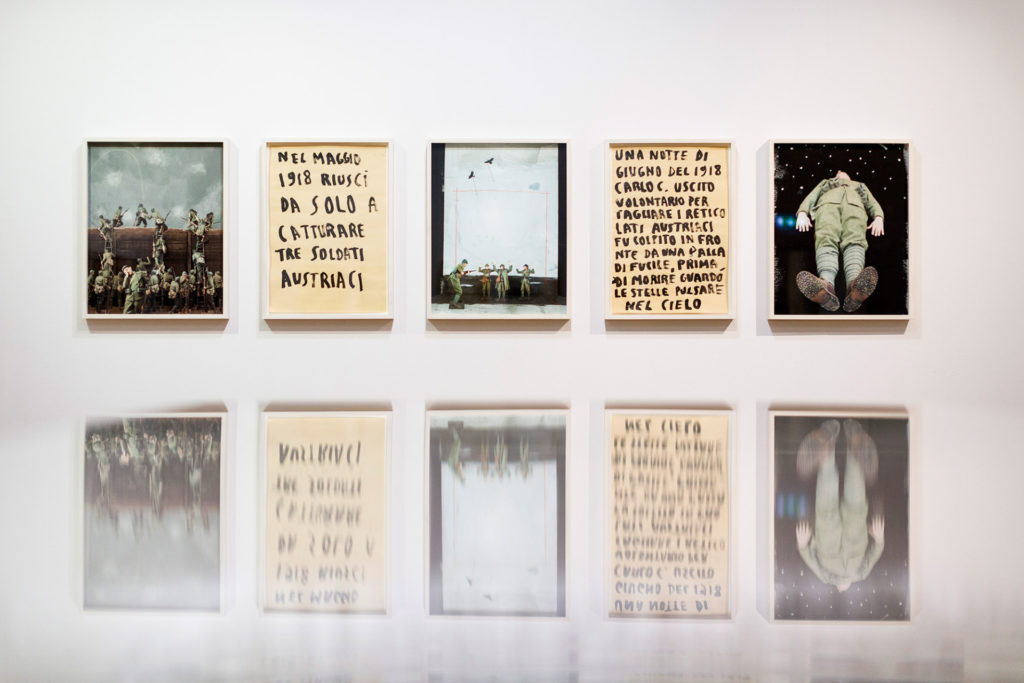 NEL MAGGIO
1918 RIUSCÌ
DA SOLO A
CATTURARE
TRE SOLDATI
AUSTRIACI
UNA NOTTE DI
GIUGNO DEL 1918
CARLO C. USCITO
VOLONTARIO PER
TAGLIARE I RETICO
LATI AUSTRIACI
FU COLPITO IN FRO
NTE DA UNA PALLA
DI FUCILE, PRIMA
DI MORIRE GUARDÒ
LE STELLE PULSARE
NEL CIELO